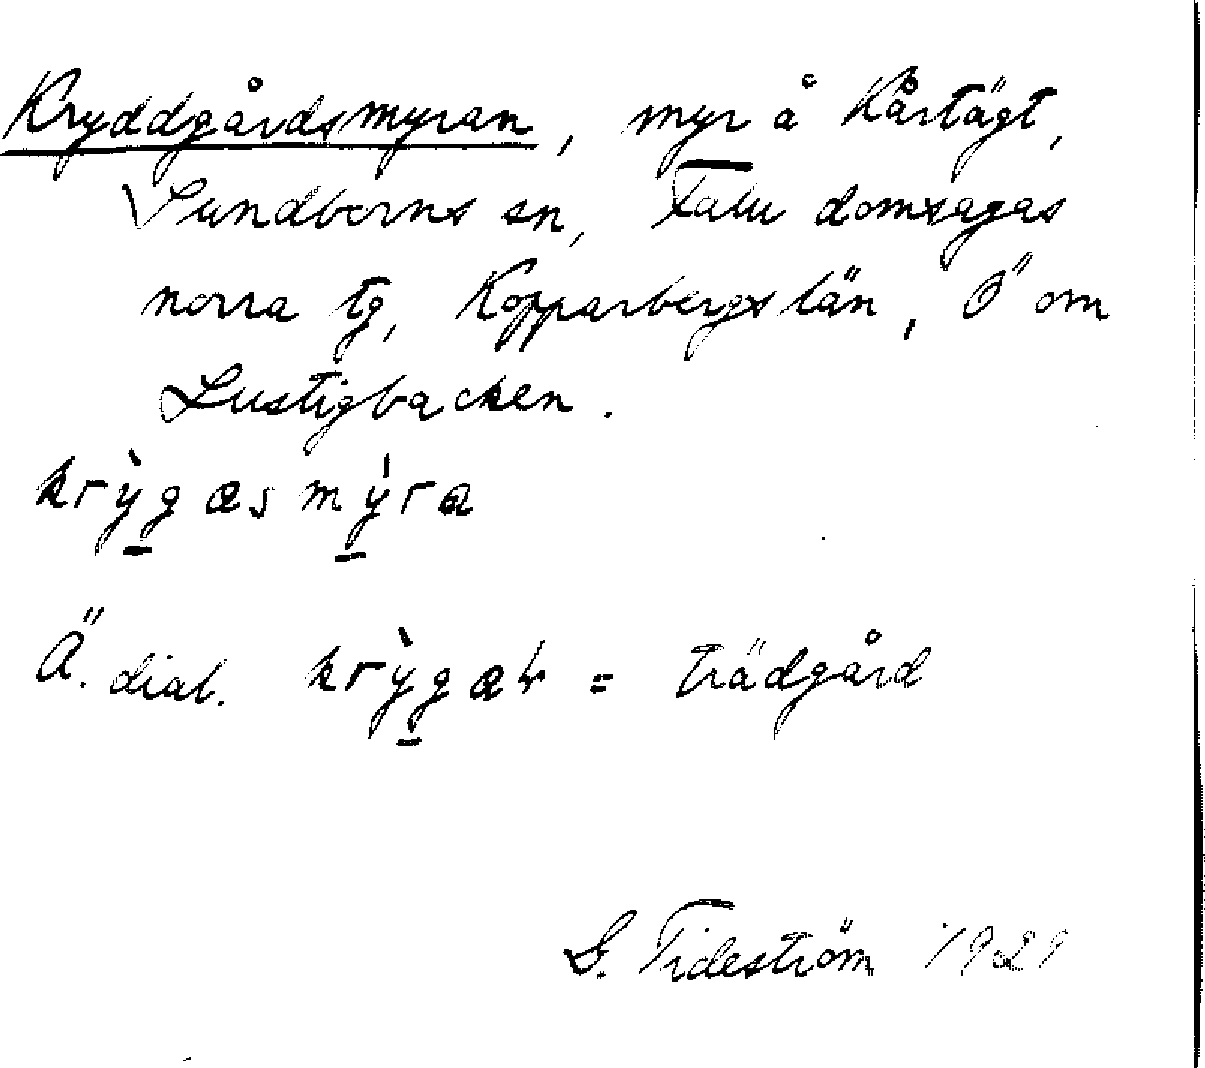 Kryddgårdsmyran, myr å Kårtägt,
Sundborns sn, Falu domsagas
norra tg, Kopparbergs län, Ö om
Lustigbacken.
krỳgasmýra
Ä. dial. krỳgaɽ = trädgård
G. Tideström 1929